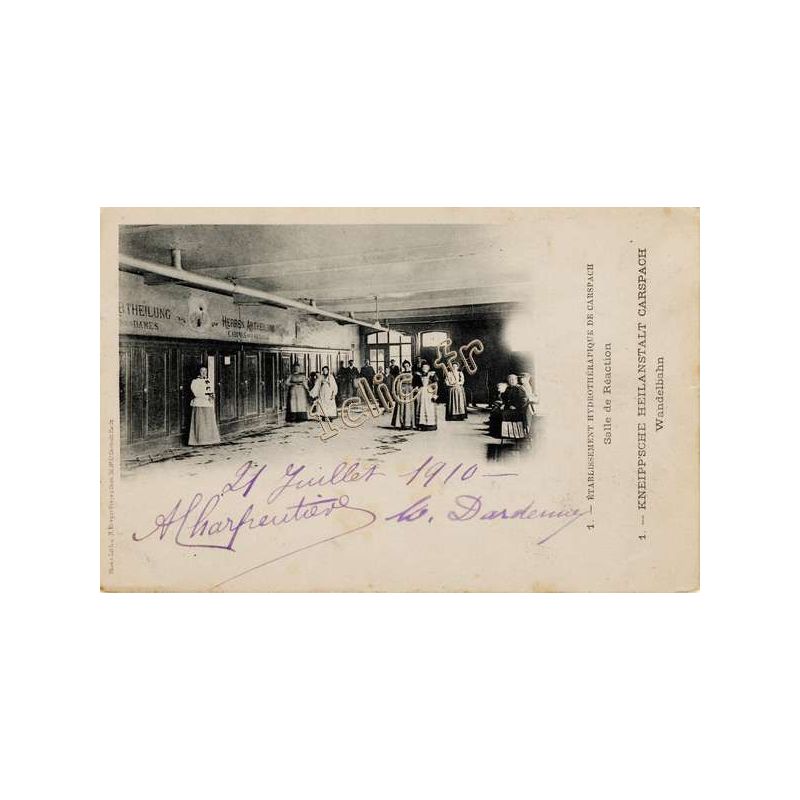 BTHEILUNG
DAMES
HERREN ABTHEILUNG
1clic.fr
21 Juillet 1910 —
ACharpentier
Dardenne
1. — ÉTABLISSEMENT HYDROTHÉRAPIQUE DE CARSPACH
Salle de Réaction
1. — KNEIPP'SCHE HEILANSTALT CARSPACH
Wandelbahn